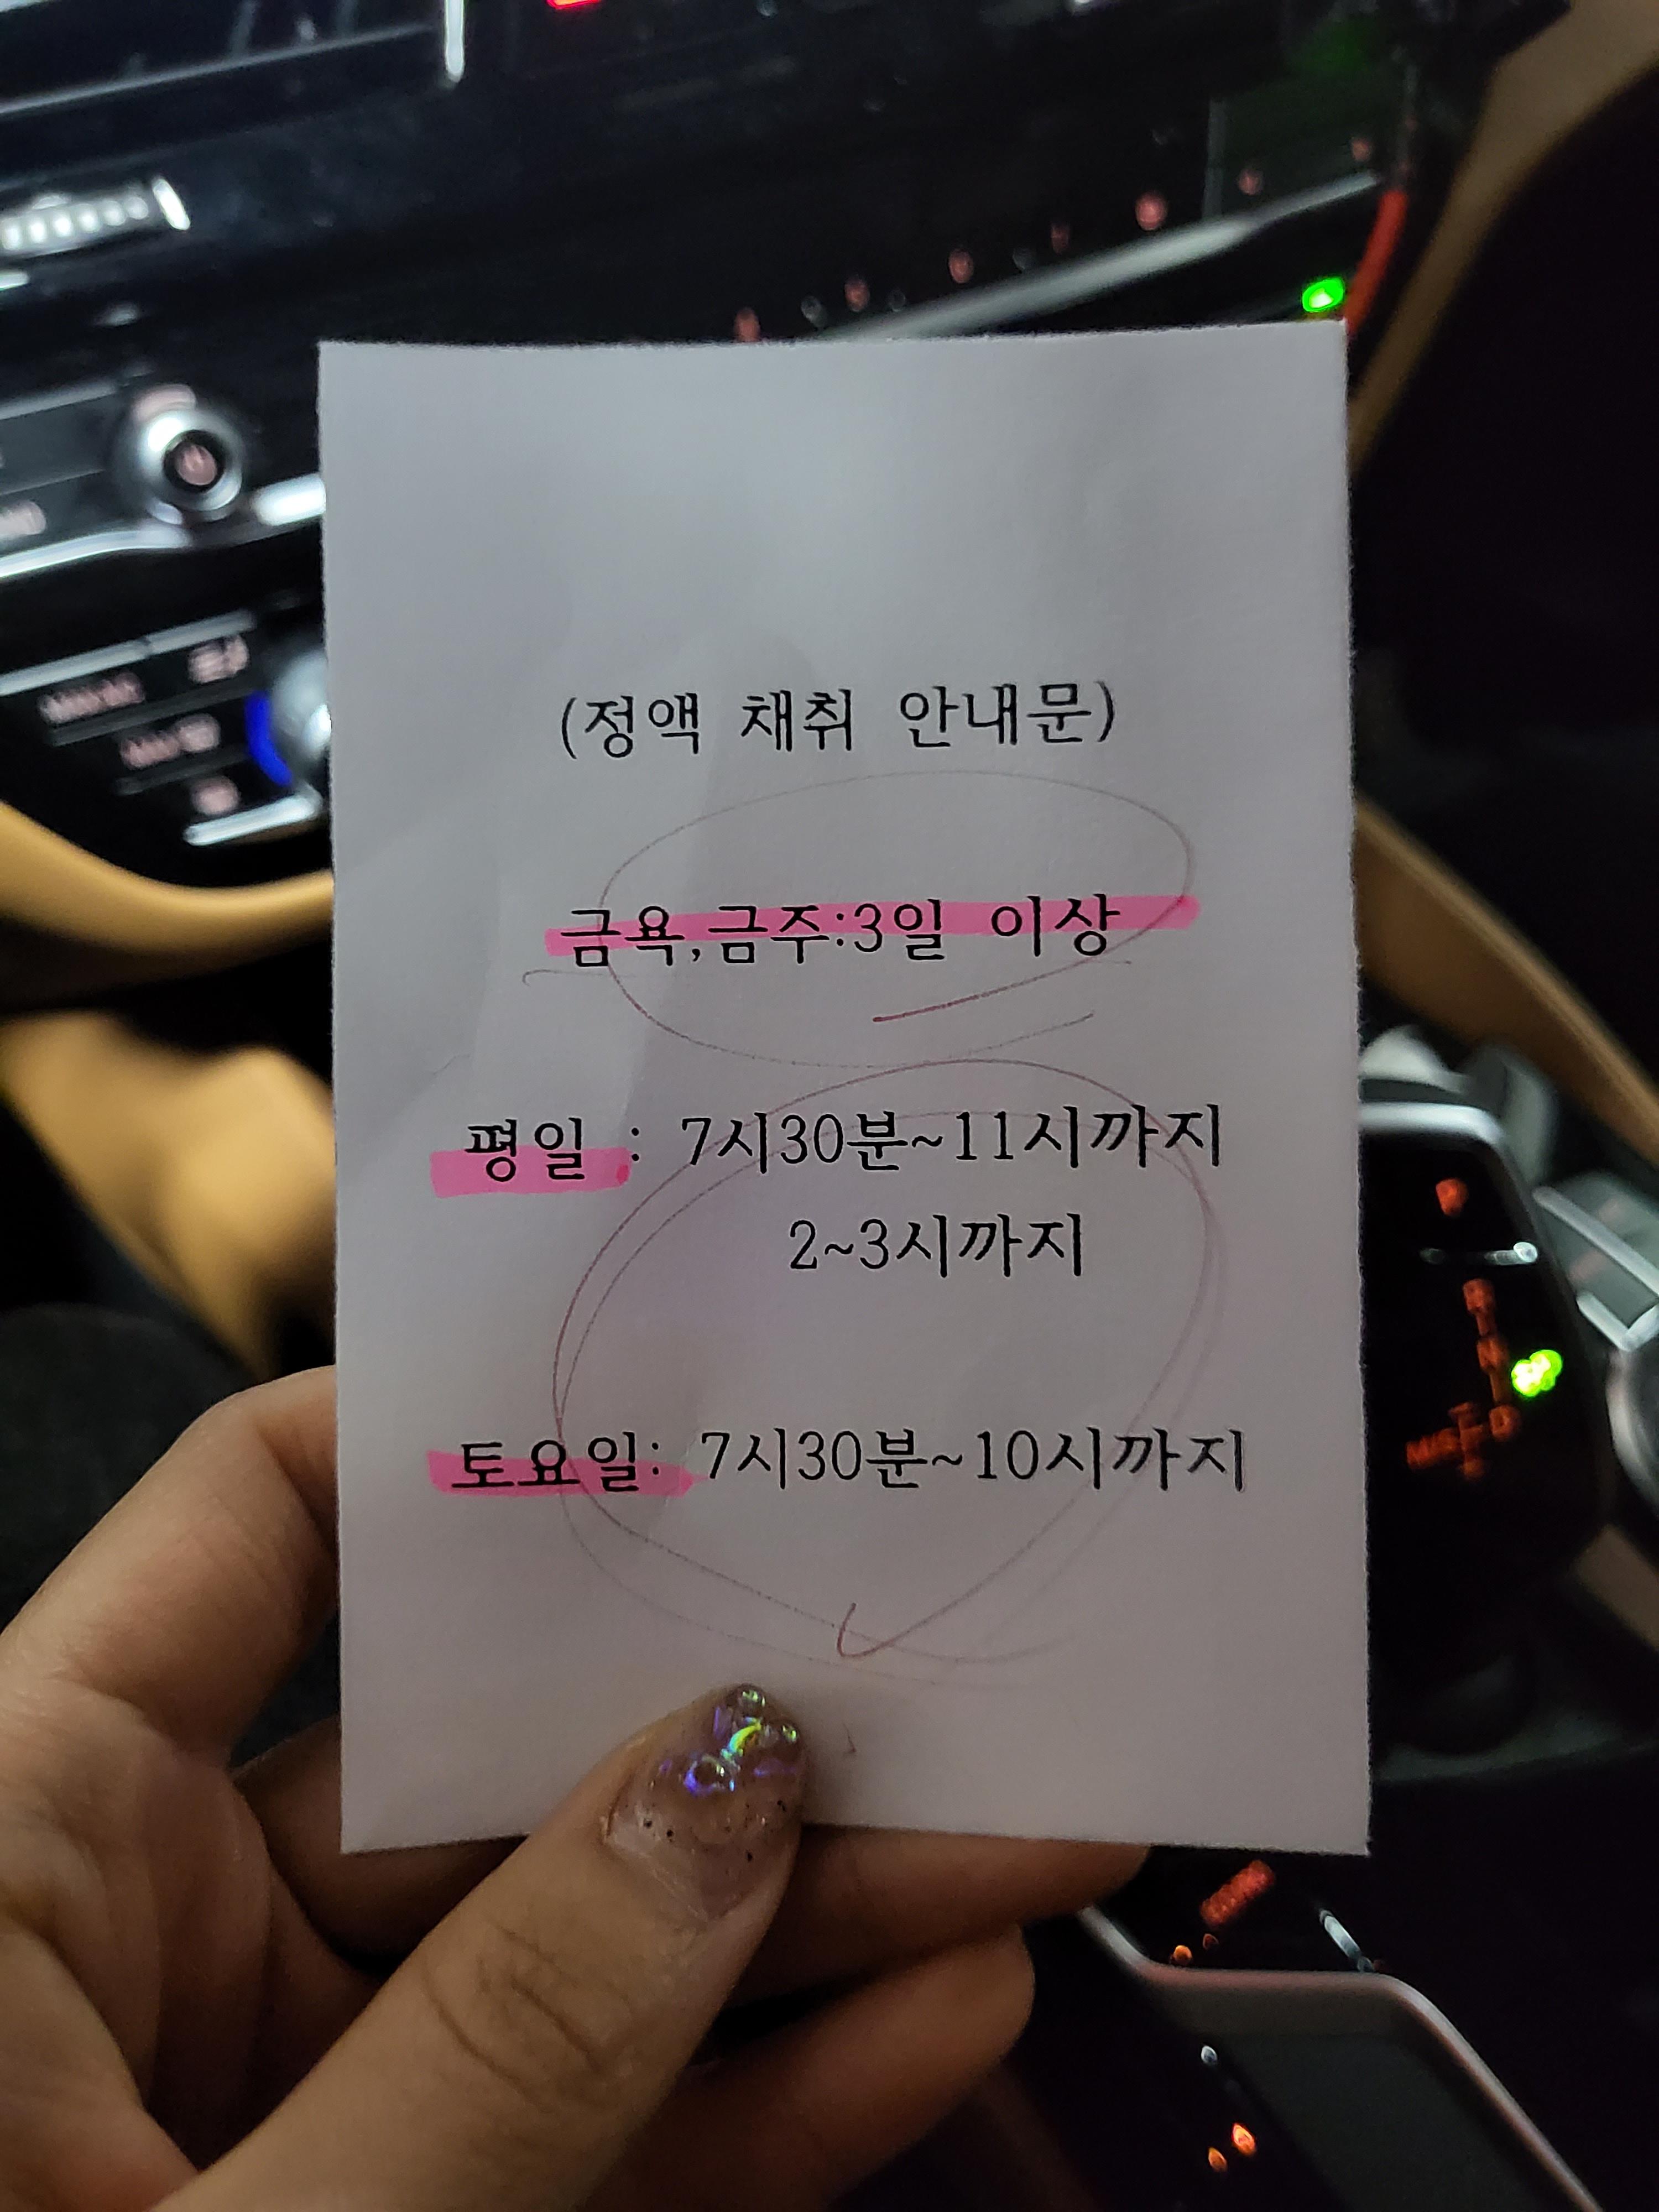 (정액 채취 안내문)
금욕,금주:3일 이상
평일 : 7시30분~11시까지
2~3시까지
토요일: 7시30분~10시까지